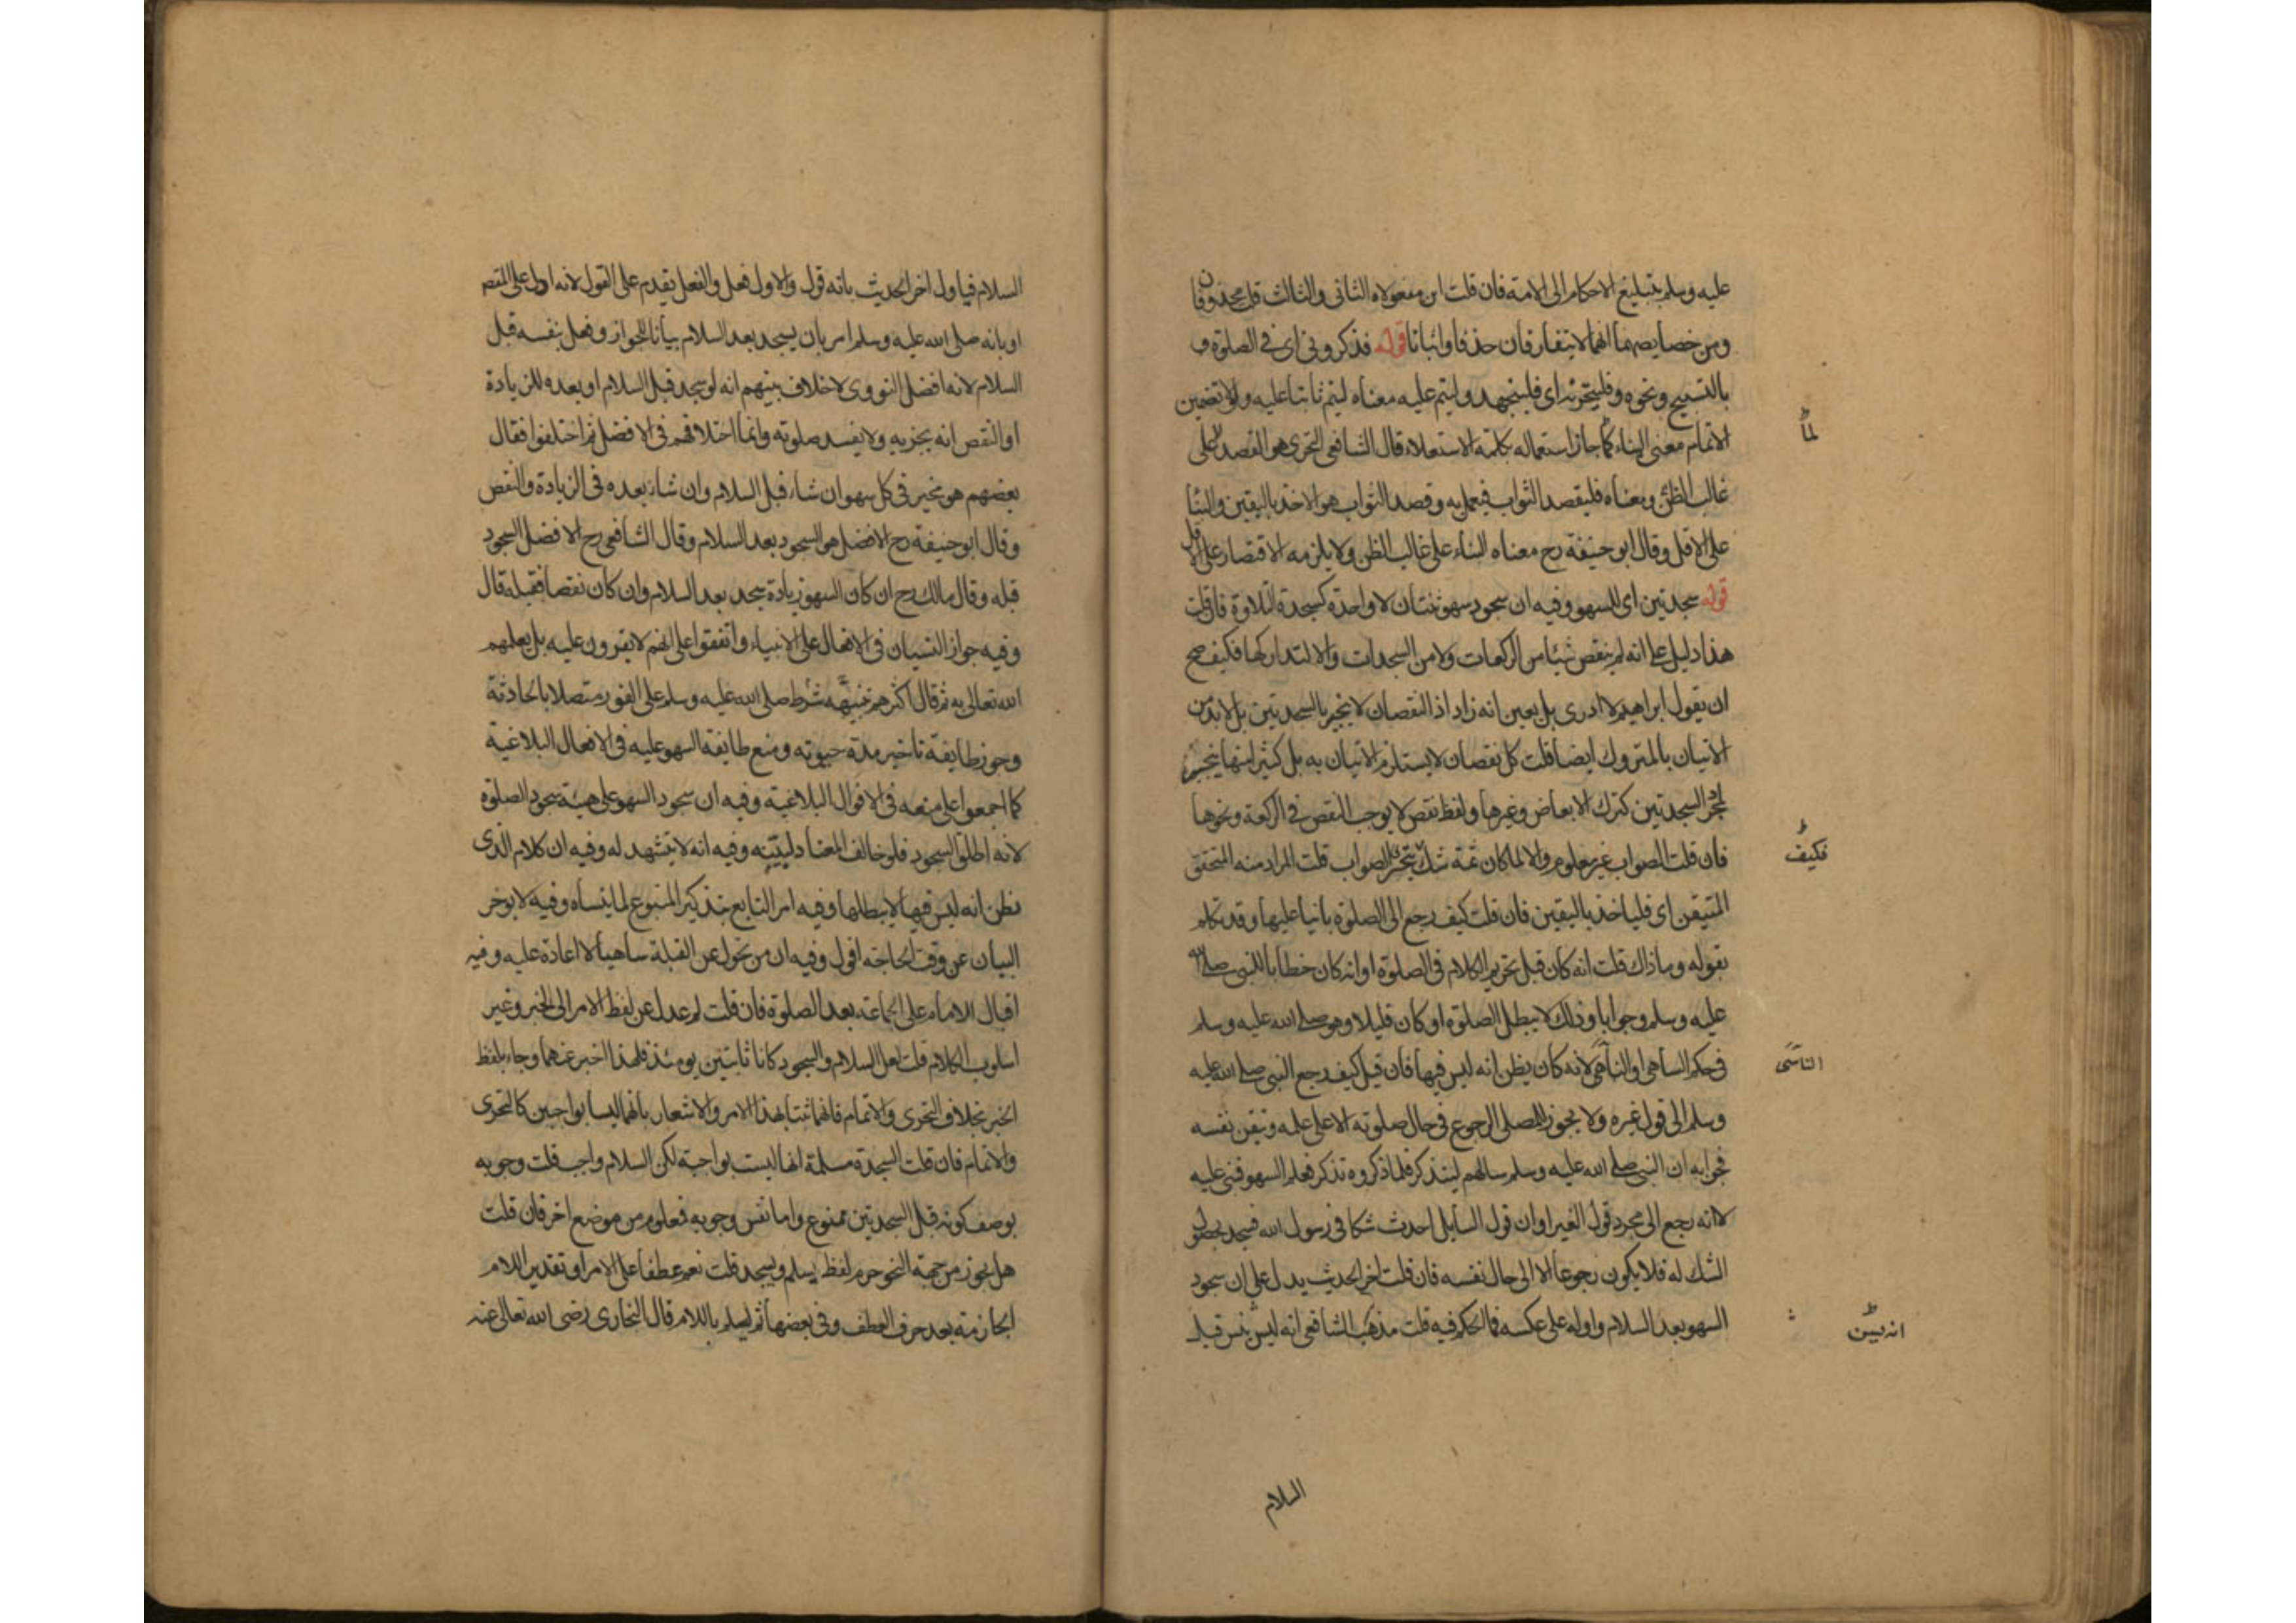 عليه وسلم بتبليغ الاحكام الى الامة فان قلت اين مفعولاه الثانى والثالث قلت محذوفان
ومن خصايصهما انهما لا يتفارقان حذفا واثباتا قوله فذكرونى اى فى الصلوة و
بالتسبيح ونحوه وفليتحر اى فليجتهد وليتم عليه معناه ليتم ثابتا عليه ولولا تضمين
الاتمام معنى البناء لما جاز استعماله بكلمة الاستعلاء قال الشافعى التحرى هو القصد على
غالب الظن ومعناه فليقصد الثواب فيعمل به وقصد الثواب هو الاخذ باليقين والبنا
على الاقل وقال ابو حنيفة رح معناه البناء على غالب الظن ولا يلزمه الاقتصار على الاقل
قوله سجدتين اى للسهو وفيه ان سجود سهو ثنتان لا واحدة كسجدة التلاوة فان قلت
هذا دليل على انه لم ينقص شيئا من الركعات ولا من السجدات والا لتداركها فكيف صح
ان يقول ابراهيم لا ادرى بل يعين انه زاد اذ النقصان لا ينجبر بالسجدتين بل لا بد من
الاتيان بالمتروك ايضا قلت كل نقصان لا يستلزم الاتيان به بل كثير منها ينجبر
بمجرد السجدتين كترك الابعاض وغيرها ولفظ نقص لا يوجب النقص فى الركعة ونحوها
فان قلت الصواب غير معلوم والا لما كان ثمة شك يتحرى الصواب قلت المراد منه المتحقق
المتيقن اى فلياخذ باليقين فان قلت كيف رجع الى الصلوة بانيا عليها وقد تكلم
بقوله وما ذاك قلت انه كان قبل تحريم الكلام فى الصلوة او انه كان خطابا للنبى صلى الله
عليه وسلم وجوابا وذلك لا يبطل الصلوة او كان قليلا وهو صلى الله عليه وسلم
فى حكم الساهى او الناسى لانه كان يظن انه ليس فيها فان قيل كيف رجع النبى صلى الله عليه
وسلم الى قول غيره ولا يجوز للمصلى الرجوع فى حال صلوته الا على علمه وتيقن نفسه
فجوابه ان النبى صلى الله عليه وسلم سالهم ليتذكر فلما ذكروه تذكر فعلم السهو فبنى عليه
لانه رجع الى مجرد قول الغير او ان قول السايل احدث شكا فى رسول الله فسجد بحصول
الشك له فلا يكون رجوعا الا الى حال نفسه فان قلت اخر الحديث يدل على ان سجود
السهو بعد السلام واوله على عكسه فما الحكم فيه قلت مذهب الشافعى انه يسن قبل
لما
فكيف
الناسى
انه يسن
السلام
السلام فياول اخر الحديث بانه قول والاول فعل والفعل يقدم على القول لانه ادل على المقصـ
او بانه صلى الله عليه وسلم امر بان يسجد بعد السلام بيانا للجواز وفعل بنفسه قبل
السلام لانه افضل النووى لا خلاف بينهم انه لو سجد قبل السلام او بعده للزيادة
او النقص انه يجزيه ولا يفسد صلوته وانما اختلافهم فى الافضل ثم اختلفوا فقال
بعضهم هو مخير فى كل سهو ان شاء قبل السلام وان شاء بعده فى الزيادة والنقص
وقال ابو حنيفة رح الافضل هو السجود بعد السلام وقال الشافعى رح الافضل السجود
قبله وقال مالك رح ان كان السهو زيادة سجد بعد السلام وان كان نقصا فقبله قال
وفيه جواز النسيان فى الافعال على الانبياء واتفقوا على انهم لا يقرون عليه بل يعلمهم
الله تعالى به ثم قال اكثرهم تنبهه شرط صلى الله عليه وسلم على الفور متصلا بالحادثة
وجوز طايفة تاخير مدة حيوته ومنع طايفة السهو عليه فى الافعال البلاغية
كما اجمعوا على منعه فى الاقوال البلاغية وفيه ان سجود السهو على هيئة سجود الصلوة
لانه اطلق السجود فلو خالف المعتاد لبينه وفيه انه لا يتشهد له وفيه ان كلام الذى
يظن انه ليس فيها لا يبطلها وفيه امر التابع بتذكير المتبوع لما ينساه وفيه لا يوخر
البيان عن وقت الحاجة اقول وفيه ان من تحول عن القبلة ساهيا لا اعادة عليه وفيه
اقبال الامام على الجماعة بعد الصلوة فان قلت لم عدل عن لفظ الامر الى الخبر وغير
اسلوب الكلام قلت لعل السلام والسجود كانا ثابتين يومئذ فلهذا اخبر عنهما وجاء بلفظ
الخبر بخلاف التحرى والاتمام فانهما ثبتا بهذا الامر والاشعار بانهما ليسا بواجبين كالتحرى
والاتمام فان قلت السجدة مسلمة انها ليست بواجبة لكن السلام واجب قلت وجوبه
بوصف كونه قبل السجدتين ممنوع واما نفس وجوبه فمعلوم من موضع اخر فان قلت
هل يجوز من جهة النحو جزم لفظ يسلم ويسجد قلت نعم عطفا على الامر او تقدير اللام
الجازمة بعد حرف العطف وفى بعضها ثم ليسلم باللام قال البخارى رضى الله تعالى عنه